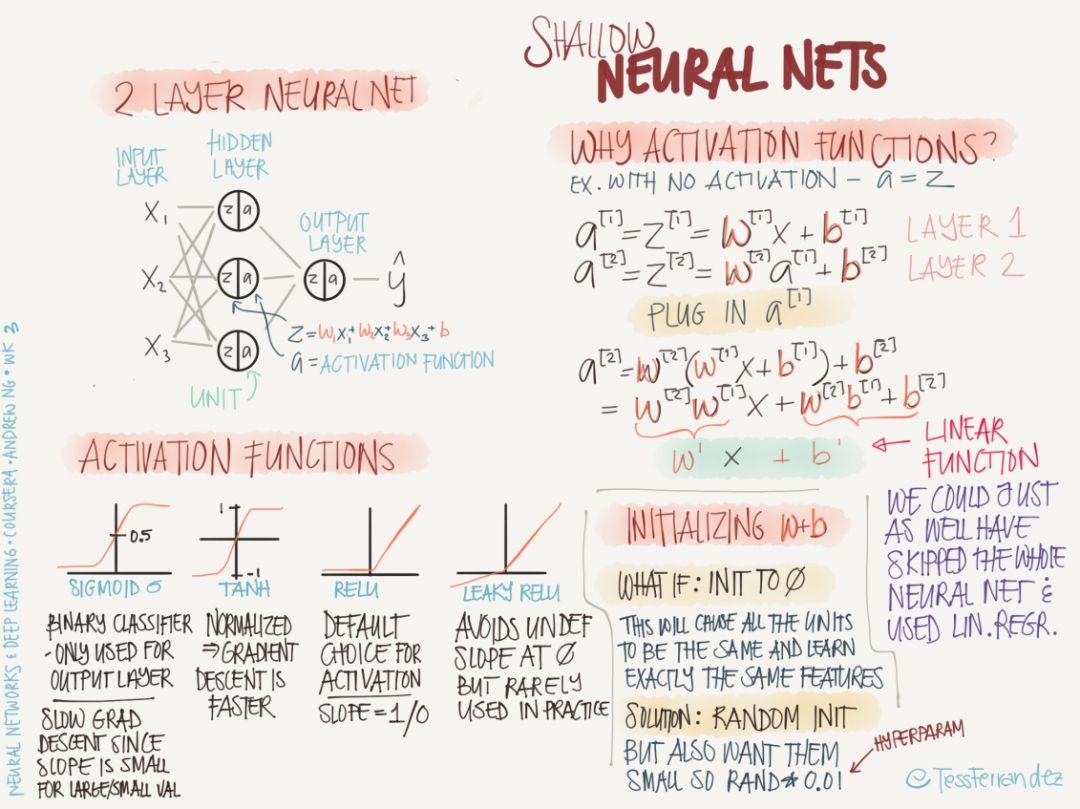 SHALLOW
NEURAL NETS
2 LAYER NEURAL NET
INPUT
LAYER
HIDDEN
LAYER
OUTPUT
LAYER
X₁
X₂
X₃
z|a
z|a
z|a
z|a
ŷ
Z=W₁X₁+W₂X₂+W₃X₃+b
a=ACTIVATION FUNCTION
UNIT
ACTIVATION FUNCTIONS
0.5
SIGMOID σ
BINARY CLASSIFIER
- ONLY USED FOR
OUTPUT LAYER
SLOW GRAD
DESCENT SINCE
SLOPE IS SMALL
FOR LARGE/SMALL VAL
1
-1
TANH
NORMALIZED
⇒ GRADIENT
DESCENT IS
FASTER
RELU
DEFAULT
CHOICE FOR
ACTIVATION
SLOPE = 1/0
LEAKY RELU
AVOIDS UNDEF
SLOPE AT 0
BUT RARELY
USED IN PRACTICE
WHY ACTIVATION FUNCTIONS?
EX. WITH NO ACTIVATION - a = z
a^[1] = z^[1] = W^[1]X + b^[1] LAYER 1
a^[2] = z^[2] = W^[2]a^[1] + b^[2] LAYER 2
PLUG IN a^[1]
a^[2] = W^[2](W^[1]X + b^[1]) + b^[2]
= W^[2]W^[1]X + W^[2]b^[1] + b^[2]
W' X + b'
LINEAR
FUNCTION
WE COULD JUST
AS WELL HAVE
SKIPPED THE WHOLE
NEURAL NET &
USED LIN. REGR.
INITIALIZING W+b
WHAT IF: INIT TO 0
THIS WILL CAUSE ALL THE UNITS
TO BE THE SAME AND LEARN
EXACTLY THE SAME FEATURES
SOLUTION: RANDOM INIT
BUT ALSO WANT THEM
SMALL SO RAND * 0.01
HYPERPARAM
@TessFerrandez
NEURAL NETWORKS & DEEP LEARNING • COURSERA • ANDREW NG • WK 3